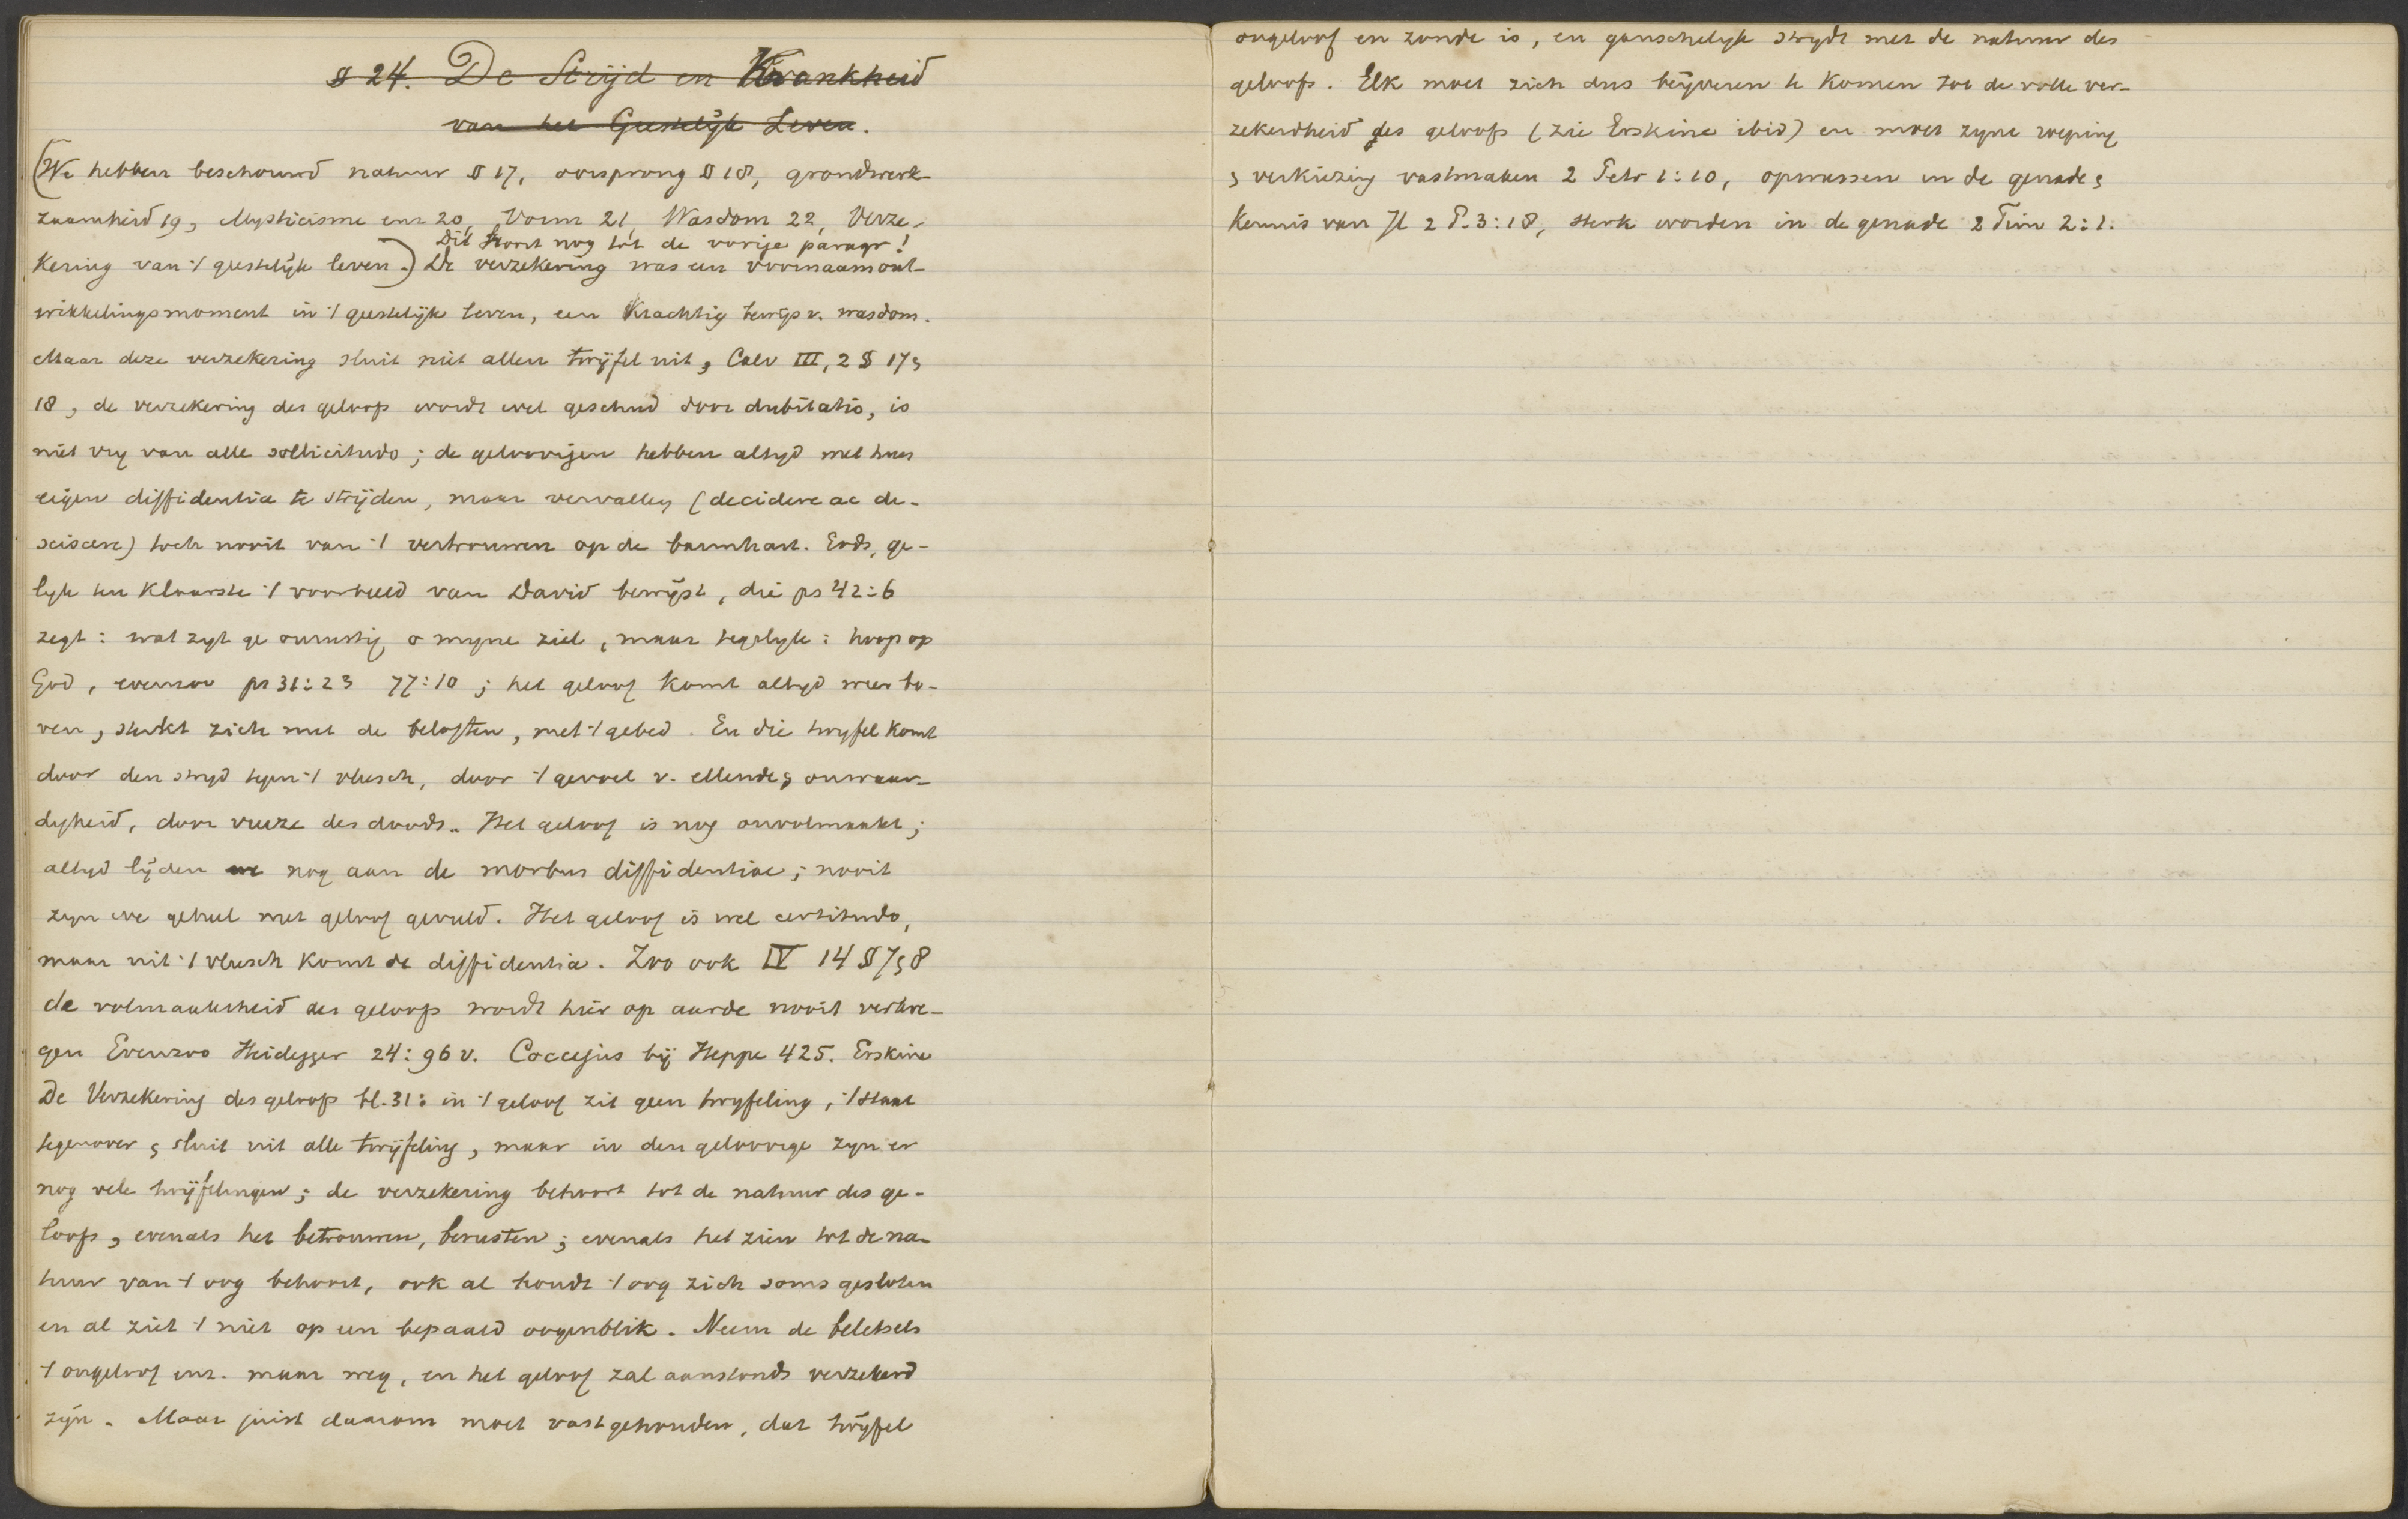 § 24. De Strijd en Krankheid
van het Geestelijk Leven.
(We hebben beschouwd natuur § 17, oorsprong § 18, grondwerk-
zaamheid 19, Mysticisme enz 20, Vorm 21, Wasdom 22, Verze-
Dit hoort nog tot de vorige paragr!
kering van 't geestelijk leven.) De verzekering was een voornaam ont-
wikkelingsmoment in 't geestelijk leven, een krachtig bewijs v. wasdom.
Maar deze verzekering sluit niet allen twijfel uit, Calv III, 2 § 17 &
18, de verzekering des geloofs wordt wel geschud door dubitatio, is
niet vry van alle sollicitudo; de geloovigen hebben altyd met hun
eigen diffidentia te strijden, maar vervallen (decidere ac de-
sciscere) toch nooit van 't vertrouwen op de barmhart. Gods, ge-
lyk ten klaarste 't voorbeeld van David bewijst, die ps 42:6
zegt: wat zyt ge onrustig o myne ziel, maar tegelyk: hoop op
God, evenzoo ps 31:23 77:10; het geloof komt altyd weer bo-
ven, sterkt zich met de beloften, met 't gebed. En die twyfel komt
door den stryd tegen 't vleesch, door 't gevoel v. ellende & onwaar-
digheid, door vreeze des doods. Het geloof is nog onvolmaakt;
altyd lijden we nog aan de morbus diffidentiae; nooit
zyn we geheel met geloof gevuld. Het geloof is wel certitudo,
maar uit 't vleesch komt de diffidentia. Zoo ook IV 14 § 7 & 8
de volmaaktheid des geloofs wordt hier op aarde nooit verkre-
gen Evenzoo Heidegger 24:96 v. Coccejus bij Heppe 425. Erskine
De Verzekering des geloofs bl. 31: in 't geloof zit geen twyfeling, 't staat
tegenover & sluit uit alle twijfeling, maar in den geloovige zyn er
nog vele twijfelingen; de verzekering behoort tot de natuur des ge-
loofs, evenals het betrouwen, berusten; evenals het zien tot de na-
tuur van 't oog behoort, ook al houdt 't oog zich soms gesloten
en al ziet 't niet op een bepaald oogenblik. Neem de beletsels
't ongeloof enz. maar weg, en het geloof zal aanstonds verzekerd
zijn. Maar juist daarom moet vastgehouden, dat twijfel
ongeloof en zonde is, en ganschelyk strydt met de natuur des
geloofs. Elk moet zich dus beijveren te komen tot de volle ver-
zekerdheid des geloofs (zie Erskine ibid) en moet zyne roeping
& verkiezing vastmaken 2 Petr 1:10, opwassen in de genade &
kennis van Jl 2 P. 3:18, sterk worden in de genade 2 Tim 2:1.